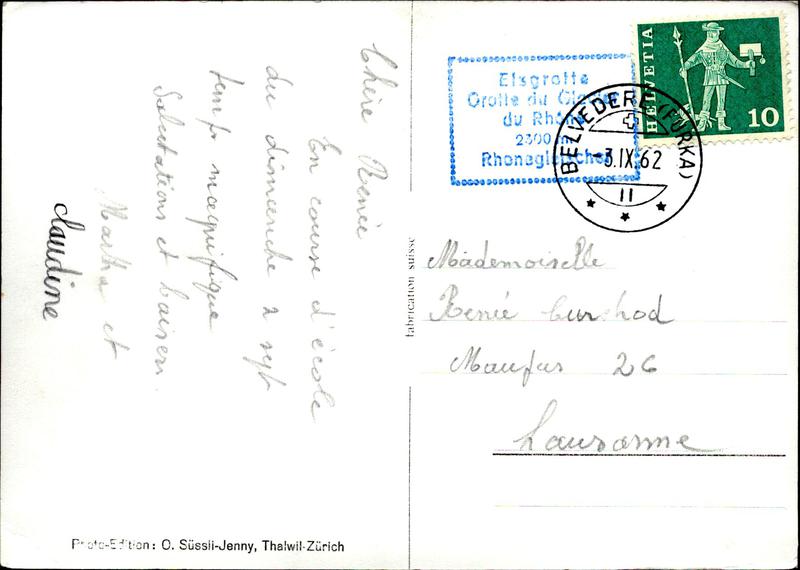 Chère Renée
En course d'école
du dimanche 2 sept
temps magnifique
Salutations et baisers.
Martha et
claudine
Photo-Edition: O. Süssli-Jenny, Thalwil-Zürich
fabrication suisse
Eisgrotte
Grotte du Glacier
du Rhône
2300 m
Rhonegletscher
BELVEDERE (FURKA)
-3.IX.62
11
HELVETIA
10
Mademoiselle
Renée Curchod
26
Lausanne